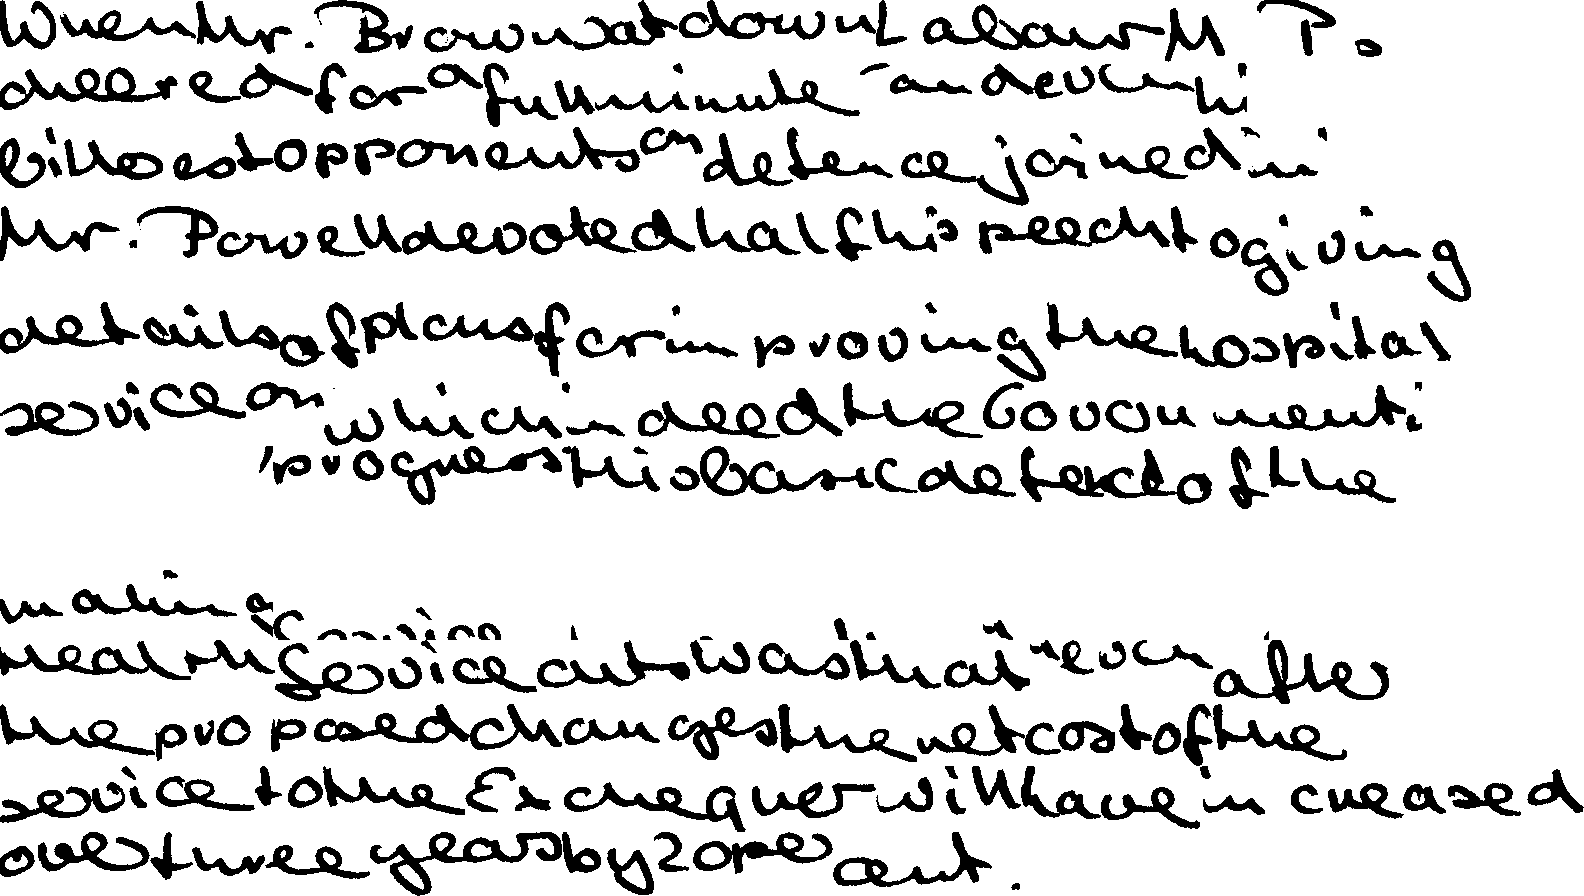 When Mr. Brown sat down Labour M P s
cheered for a full minute - and even hi
bitterest opponents on defence, joined in
Mr. Powell devoted half his speech to giving
details of plans for improving the hospital
service on which indeed the Government i
progress this basic defect of the
making
Health Service cuts was that " even after
the proposed changes the net cost of the
service to the Exchequer will have increased
over three years by 20 per cent.